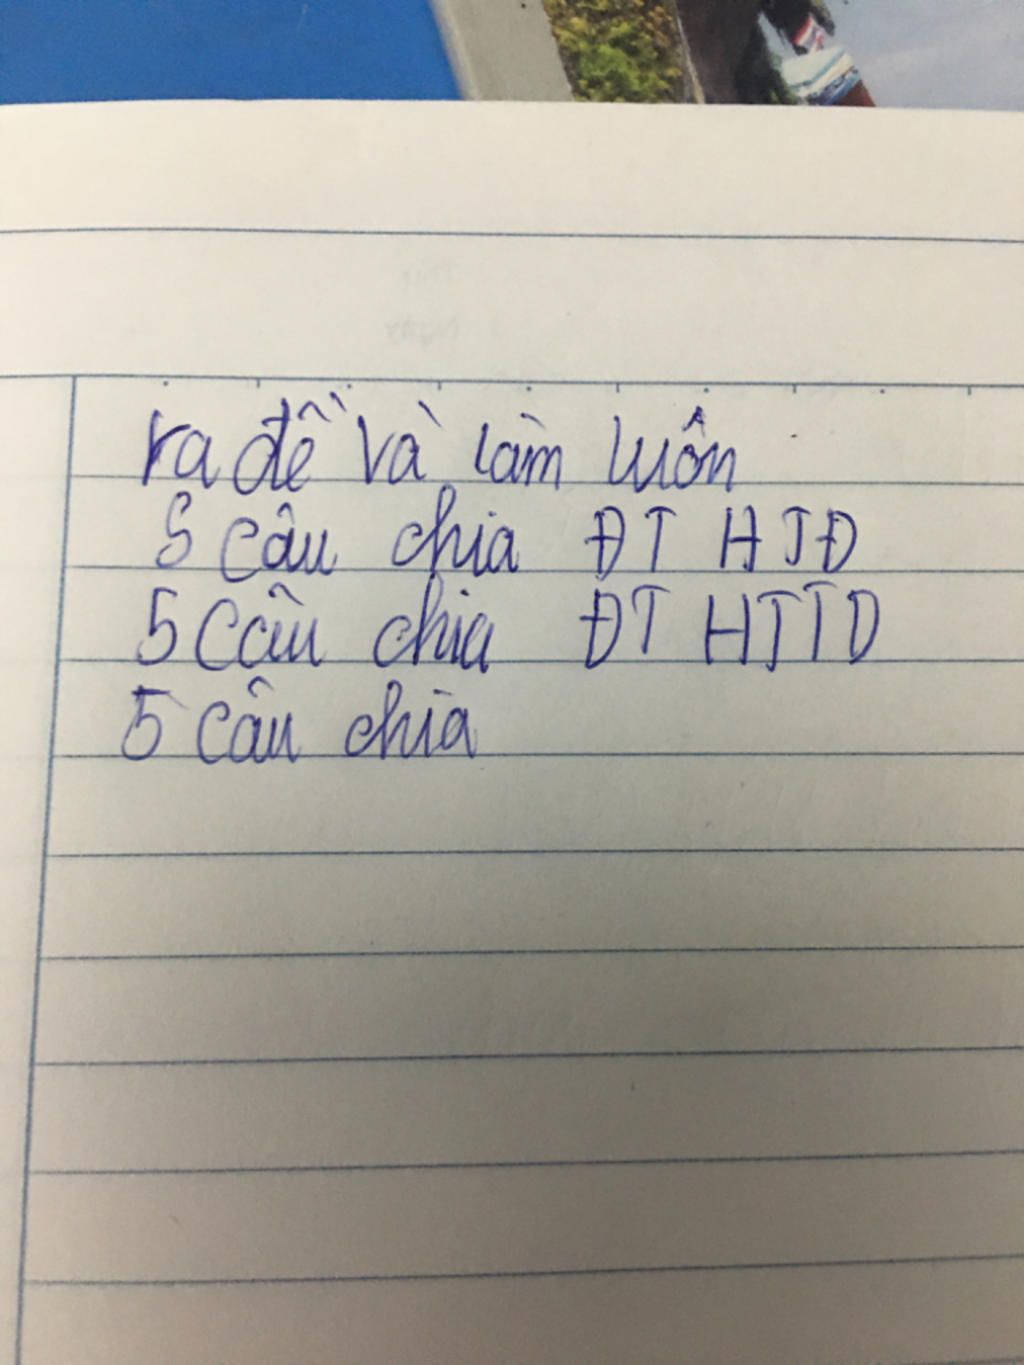 ra đề và làm luôn
5 câu chia ĐT HTĐ
5 câu chia ĐT HTTD
5 câu chia